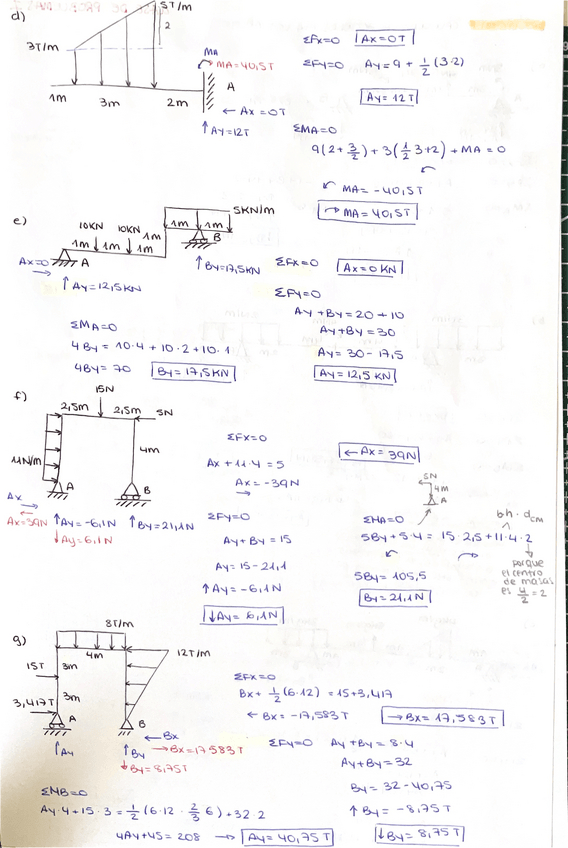 d)
5T/m
2
3T/m
MA
MA=40,5T
A
1m
3m
2m
← Ax = 0T
↑ Ay=12T
ΣFx=0 Ax=0T
ΣFy=0 Ay = 9 + 1/2 (3·2)
Ay = 12T
ΣMA=0
9(2+3/2)+3(1/2 3+2)+MA = 0
MA = -40,5T
MA = 40,5T
e)
5KN/m
1m 1m
10KN 10KN 1m
1m 1m 1m
B
Ax=0
A
↑ By=17,5KN
↑ Ay=12,5KN
ΣFx=0 Ax=0 KN
ΣFy=0
Ay + By = 20 + 10
Ay+By = 30
Ay = 30 - 17,5
Ay = 12,5 KN
ΣMA=0
4By = 10·4 + 10·2 + 10·1
4By = 70 By = 17,5KN
f)
15N
2,5m 2,5m 5N
4m
11N/m
A
B
Ax
Ax=39N ↑Ay=-6,1N ↑By=21,1N
↓Ay=6,1N
ΣFx=0
Ax + 11·4 = 5
Ax = -39N
← Ax = 39N
ΣFy=0
Ay + By = 15
Ay = 15-21,1
↑ Ay = -6,1N
↓Ay = 6,1N
5N
4m
A
b·h·dCM
ΣMA=0
5By + 5·4 = 15·2,5 + 11·4·2
porque
el centro
de masas
es 4/2 = 2
5By = 105,5
By = 21,1N
g)
8T/m
4m
12T/m
15T
3m
3,417T
3m
A
B
← Bx
↑Ay
↑By → Bx=17583T
↓By=8,75T
ΣFx=0
Bx + 1/2 (6·12) = 15+3,417
← Bx = -17,583T → Bx = 17,583T
ΣFy=0 Ay+By = 8·4
Ay+By = 32
By = 32 - 40,75
↑ By = -8,75T
↓By = 8,75T
ΣMB=0
Ay·4+15·3 = 1/2 (6·12·2/3 6) + 32·2
4Ay+45 = 208 → Ay = 40,75T